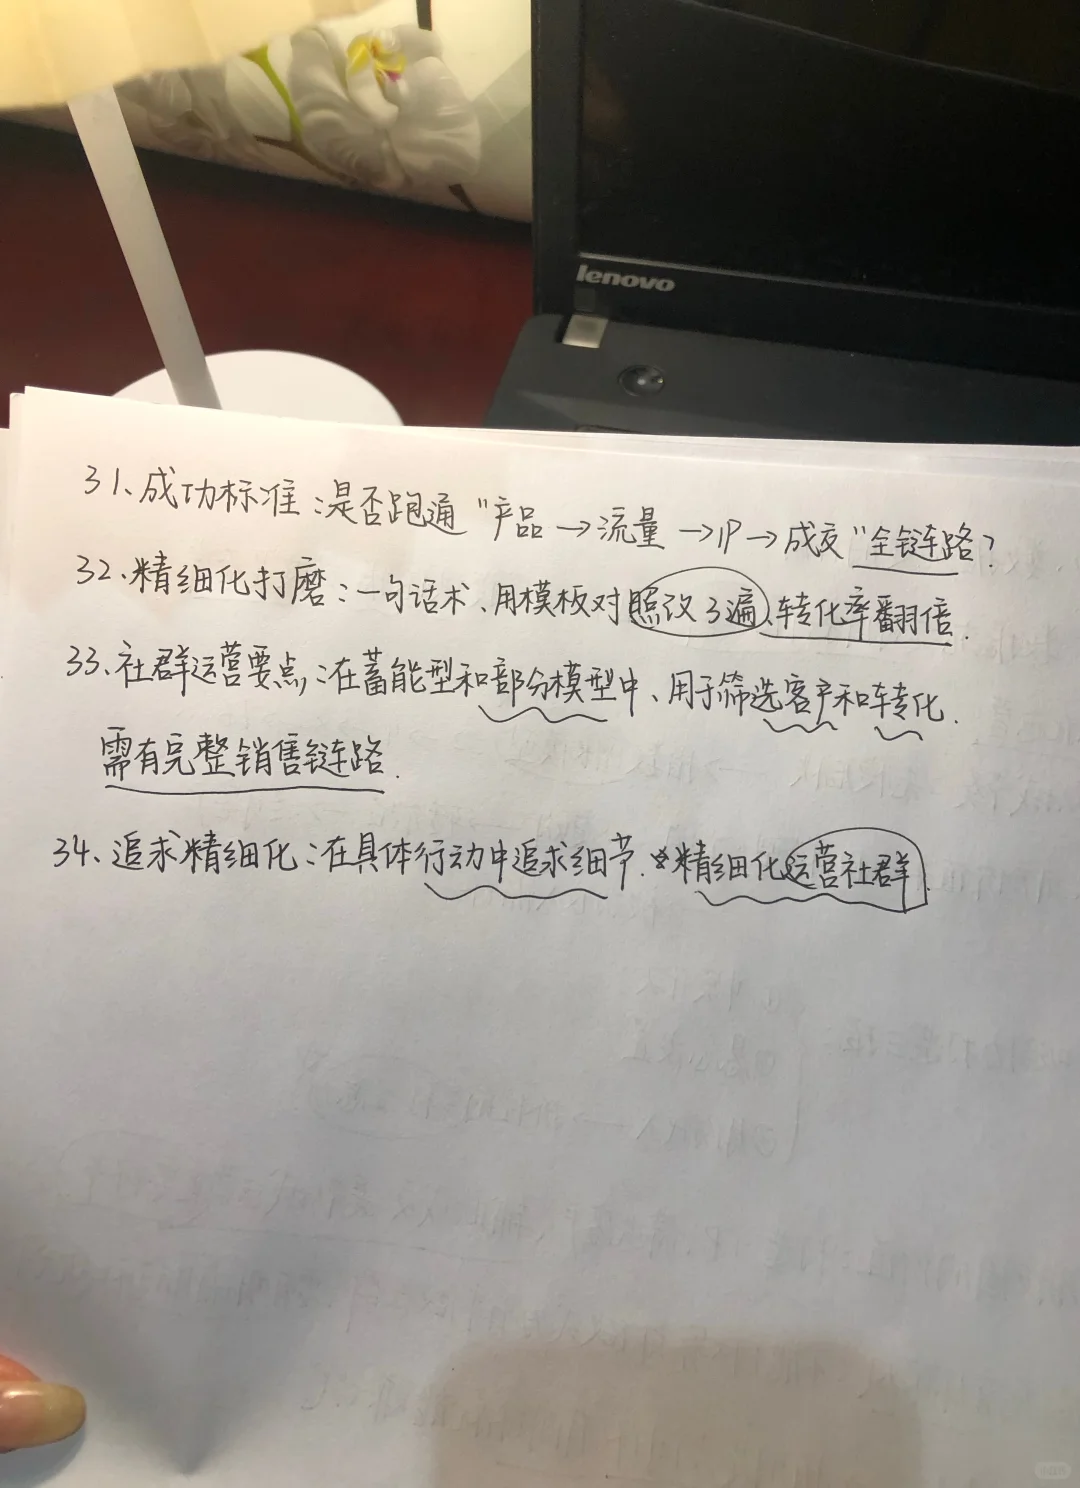 lenovo
31、成功标准：是否跑通"产品→流量→IP→成交"全链路？
32、精细化打磨：一句话术、用模板对照改3遍、转化率翻倍.
33、社群运营要点：在蓄能型和部分模型中、用于筛选客户和转化.
需有完整销售链路.
34、追求精细化：在具体行动中追求细节.☆精细化运营社群.